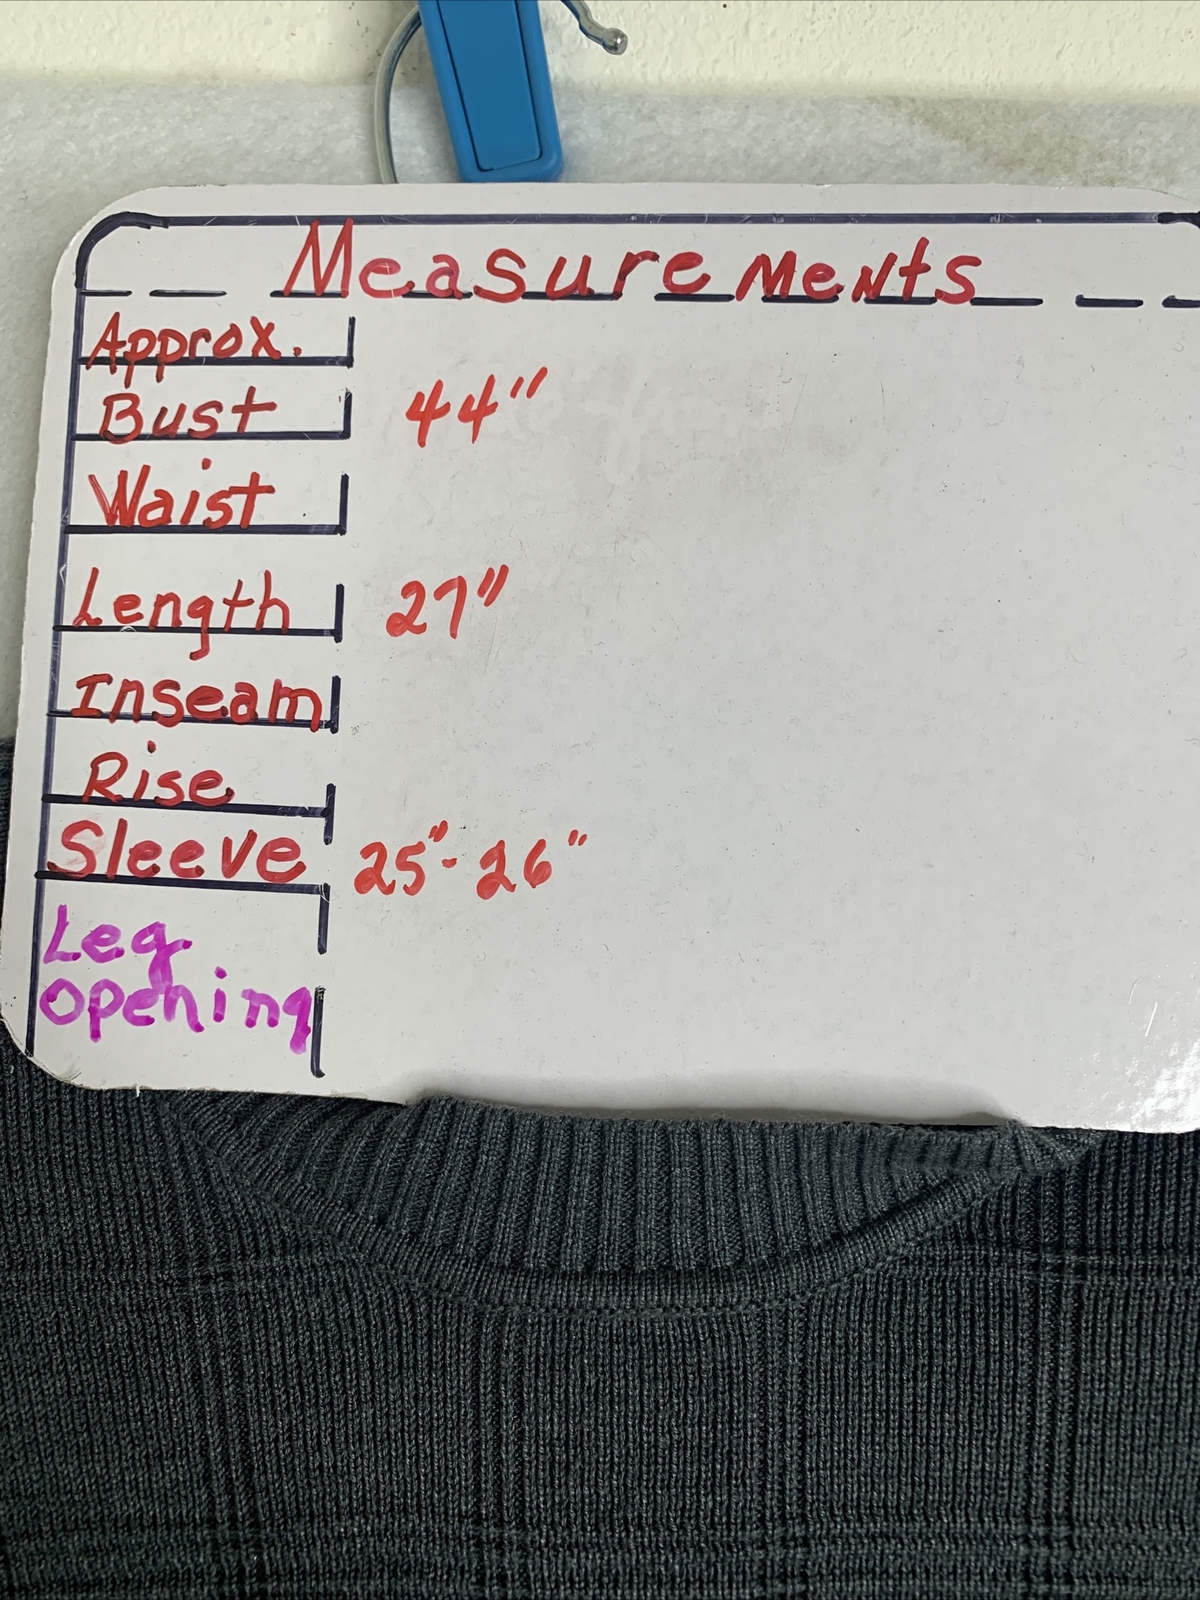 Measurements
Approx.
Bust 44"
Waist
Length 27"
Inseam
Rise
Sleeve 25"-26"
Leg
Opening